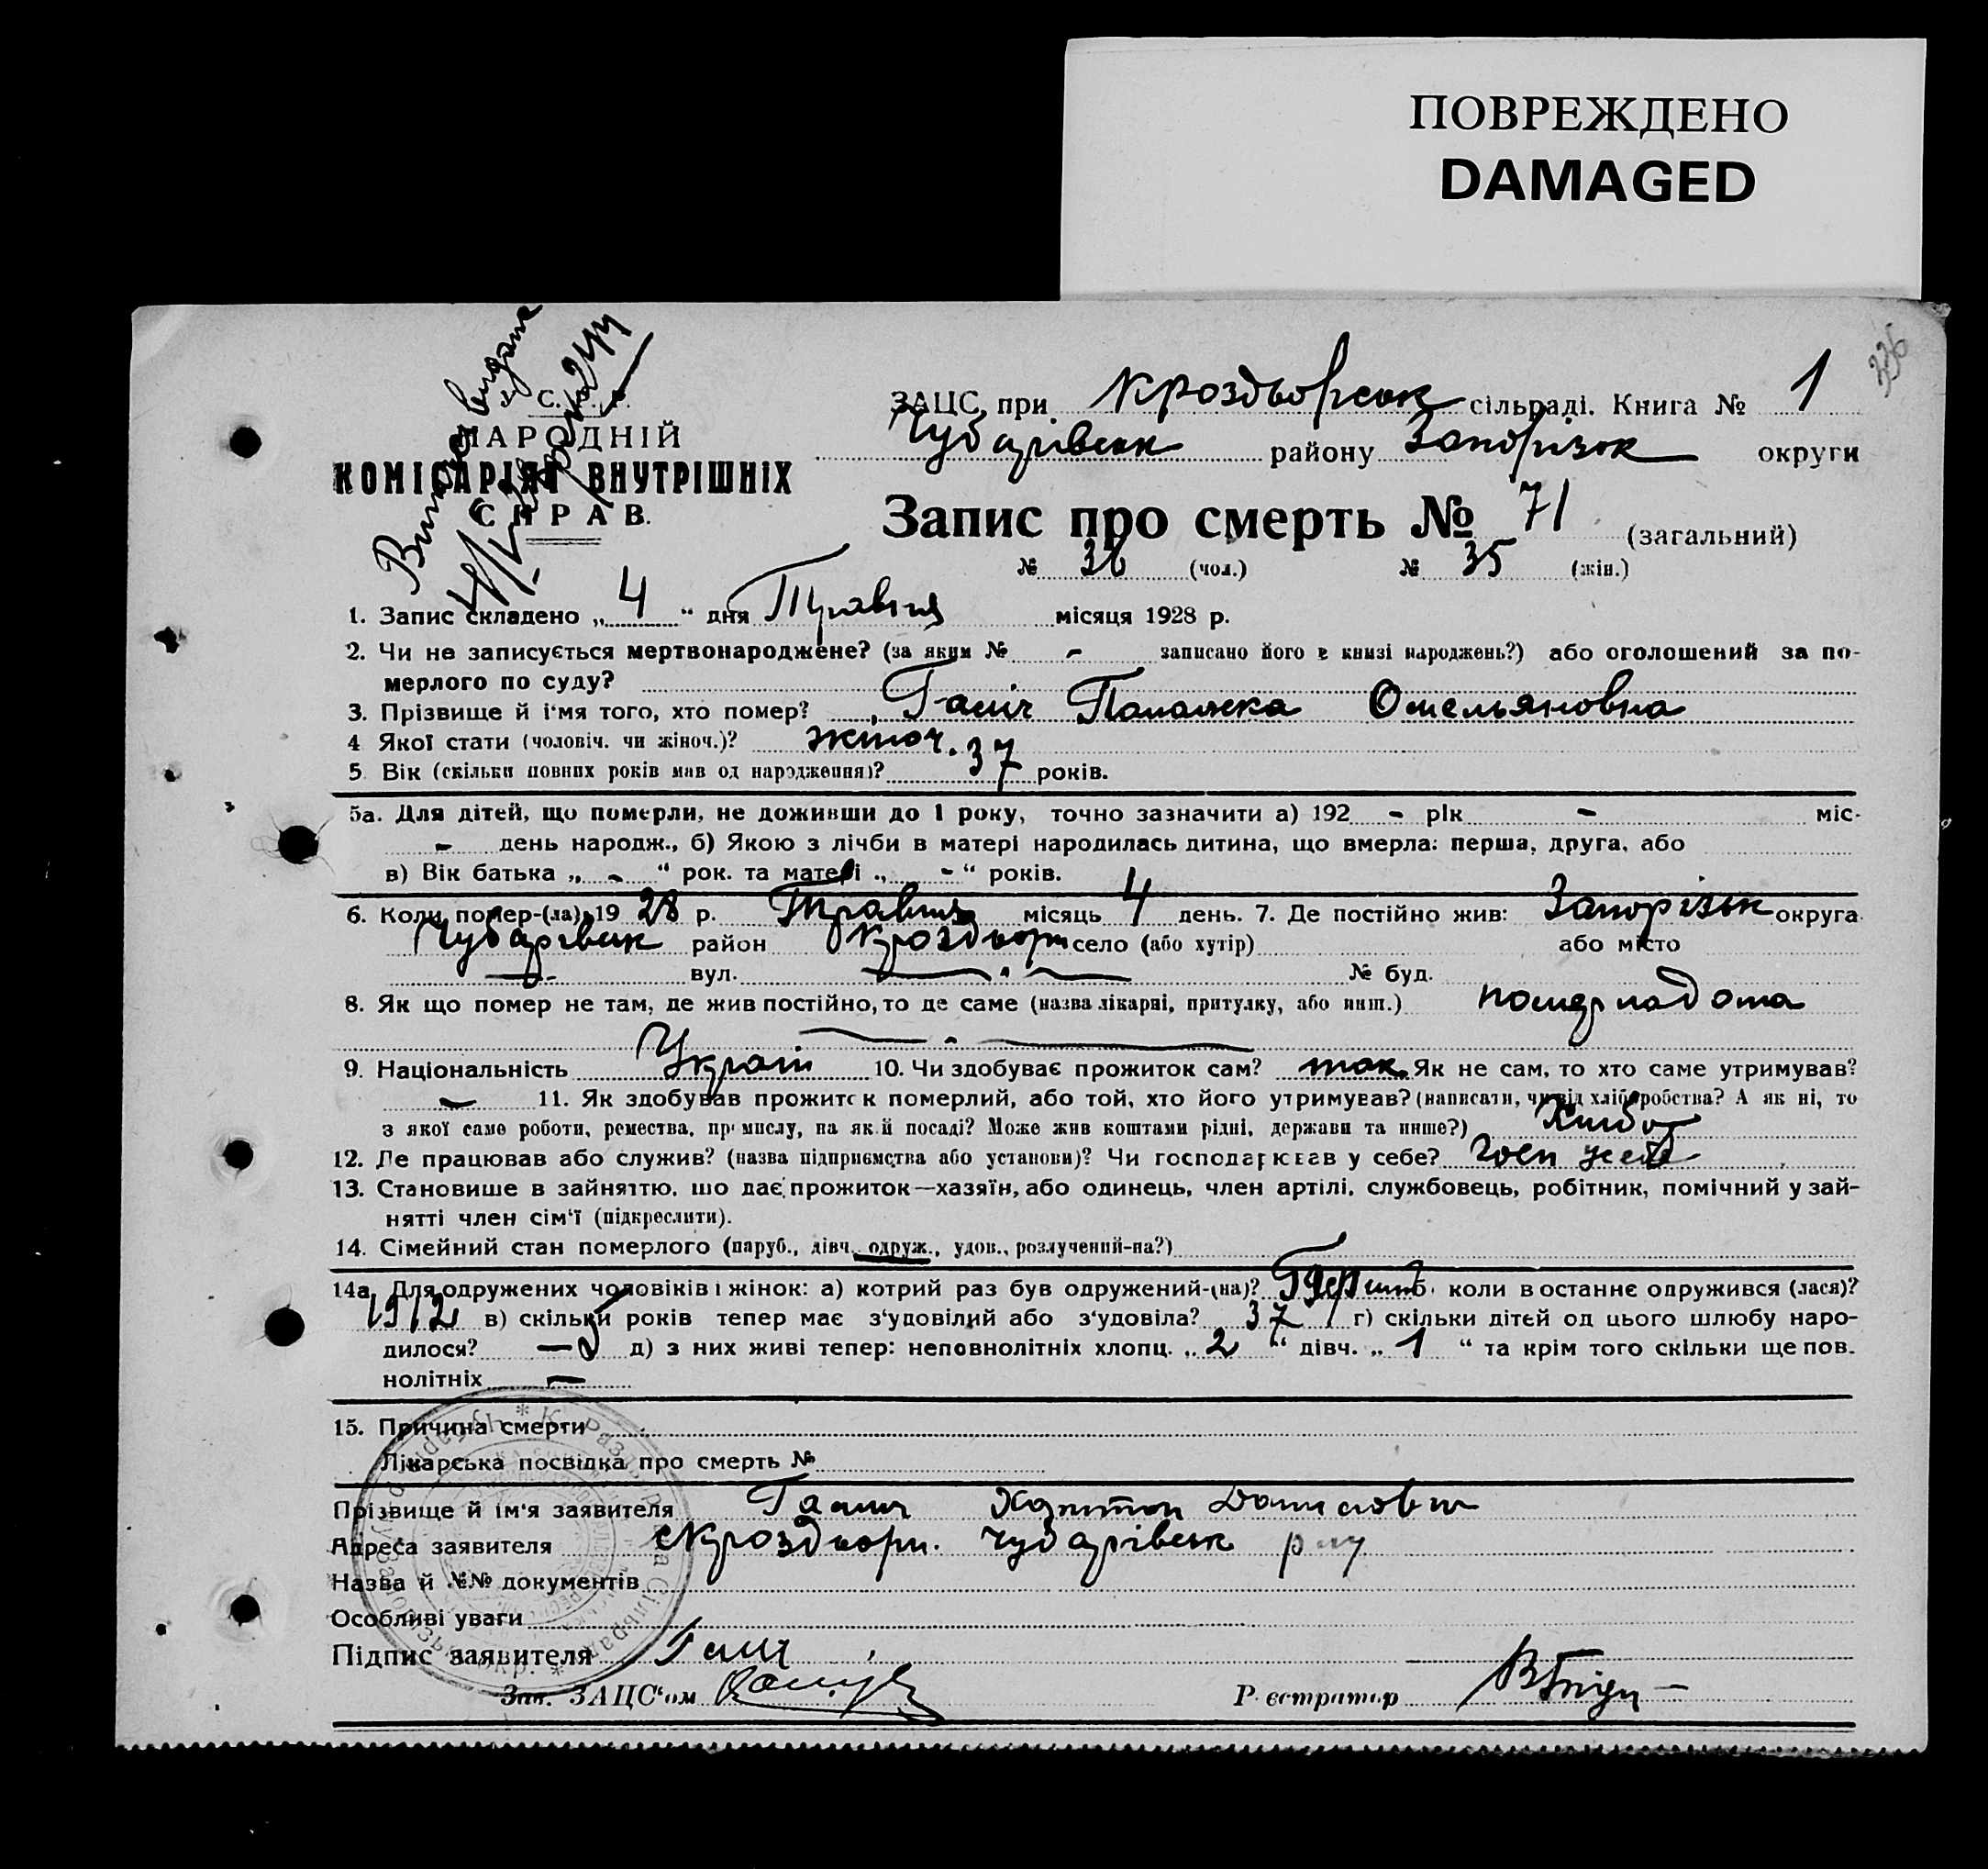 ПОВРЕЖДЕНО
DAMAGED
336
НАРОДНІЙ
КОМІСАРІЯТ ВНУТРІШНІХ
СПРАВ.
ЗАЦС при Кроздворськ сільраді. Книга № 1
Чубарівськ району Запорізьк округи
Запис про смерть № 71 (загальний)
№ 36 (чол.) № 35 (жін.)
1. Запис складено „ 4 “ дня Травня місяця 1928 р.
2. Чи не записується мертвонароджене? (за яким № - записано його в книзі народжень?) або оголошений за по-
мерлого по суду?
3. Прізвище й і'мя того, хто помер? Галіч Палажка Омельяновна
4 Якої стати (чоловіч. чи жіноч.)? жіноч.
5. Вік (скільки повних років мав од народження)? 37 років.
5а. Для дітей, що померли, не доживши до 1 року, точно зазначити а) 192 - рік - міс-
- день народж., б) Якою з лічби в матері народилась дитина, що вмерла: перша, друга, або
в) Вік батька „ - “ рок. та матері „ - “ років.
6. Коли помер-(ла) 19 28 р. Травня місяць 4 день. 7. Де постійно жив: Запорізьк округа
Чубарівськ район Кроздворн село (або хутір) або місто
вул. № буд.
8. Як що помер не там, де жив постійно, то де саме (назва лікарні, притулку, або инш.)
9. Національність Україн 10. Чи здобуває прожиток сам? так. Як не сам, то хто саме утримував?
- 11. Як здобував прожиток померлий, або той, хто його утримував? (написати, чи від хліборобства? А як ні, то
з якої саме роботи, ремества, промислу, на якій посаді? Може жив коштами рідні, держави та инше?)
12. Де працював або служив? (назва підприємства або установи)? Чи господарював у себе?
13. Становище в зайняттю, що дає прожиток—хазяїн, або одинець, член артілі, службовець, робітник, помічний у зай-
нятті член сім'ї (підкреслити).
14. Сімейний стан померлого (паруб., дівч., одруж., удов., розлучений-на?)
14а. Для одружених чоловіків і жінок: а) котрий раз був одружений-(на)? б) коли востаннє одружився (лася)?
1912 в) скільки років тепер має з'удовілий або з'удовіла? 37 г) скільки дітей од цього шлюбу наро-
дилося? д) з них живі тепер: неповнолітніх хлопц. „ 2 “ дівч. „ 1 “ та крім того скільки ще пов-
нолітніх -
15. Причина смерти
Лікарська посвідка про смерть №
Прізвище й ім'я заявителя Галич Харитон Данилович
Адреса заявителя Кроздворн. Чубарівськ р-ну
Назва й №№ документів
Особливі уваги
Підпис заявителя Галич
Зав. ЗАЦС'ом
Реєстратор